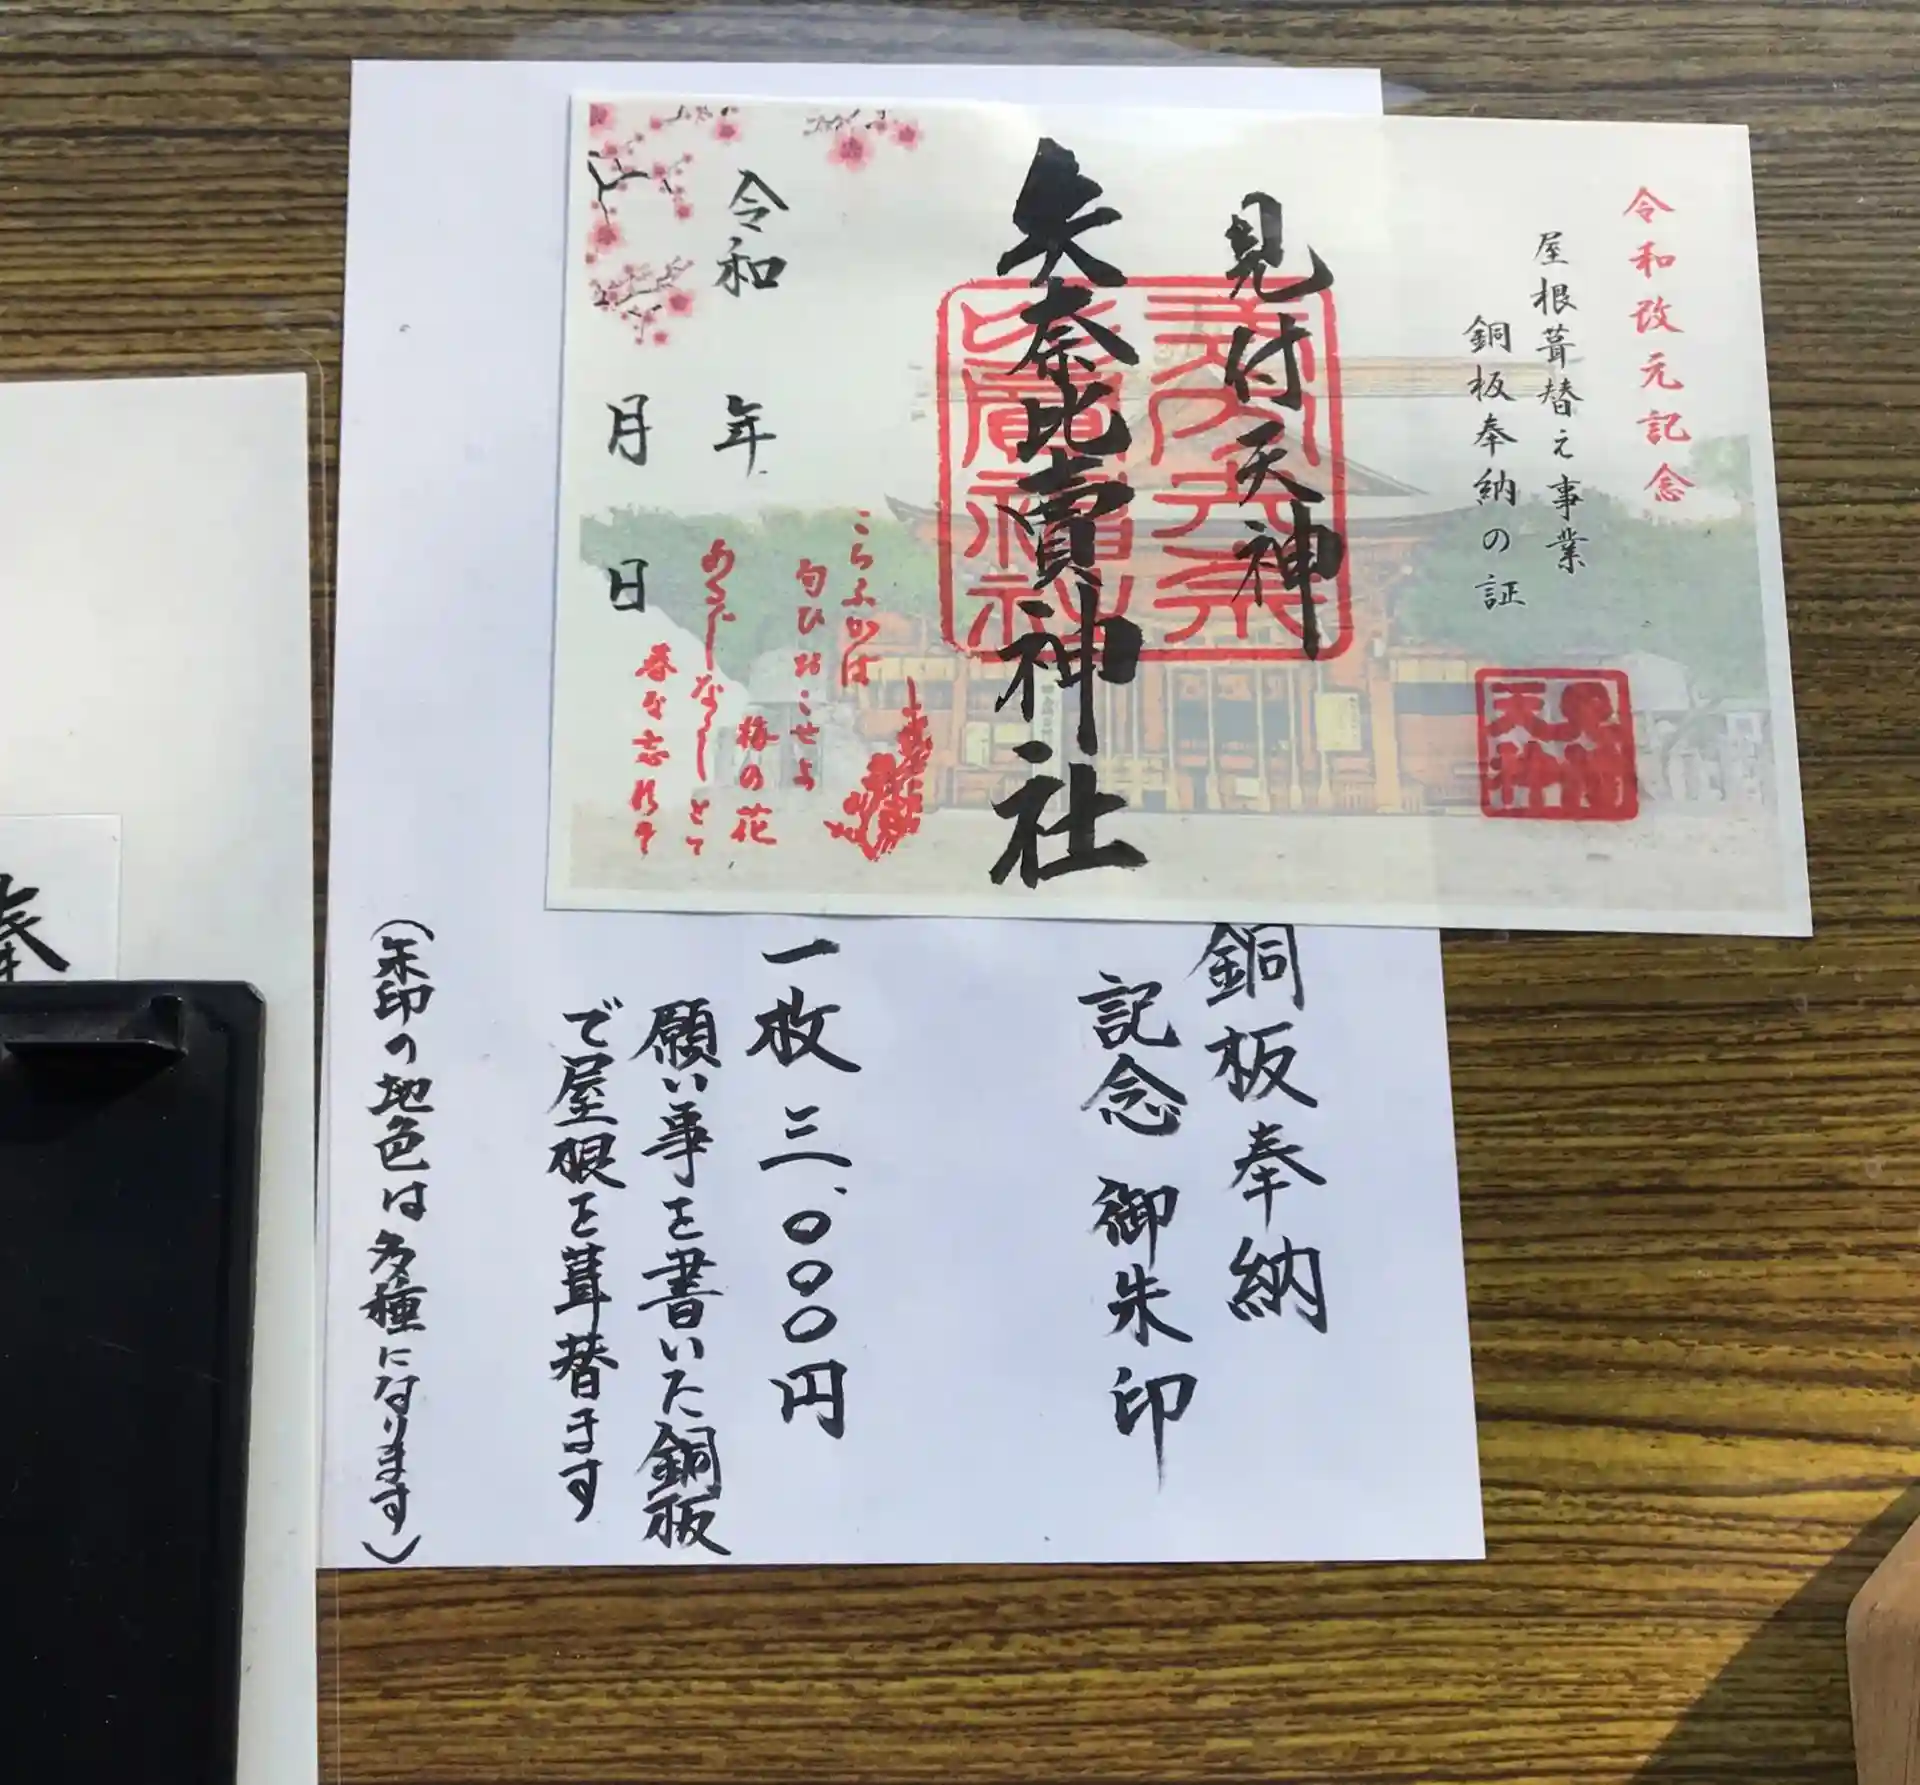 令和改元記念
屋根葺替え事業
銅板奉納の証
見付天神
見付天神
矢奈比賣神社
令和
年
月
日
こち
匂ひおこせよ
梅の花
あるじなしとて
春な忘れそ
銅板奉納
記念 御朱印
一枚 三、〇〇〇円
願い事を書いた銅板
で屋根を葺替ます
(朱印の地色は多種になります)
奉